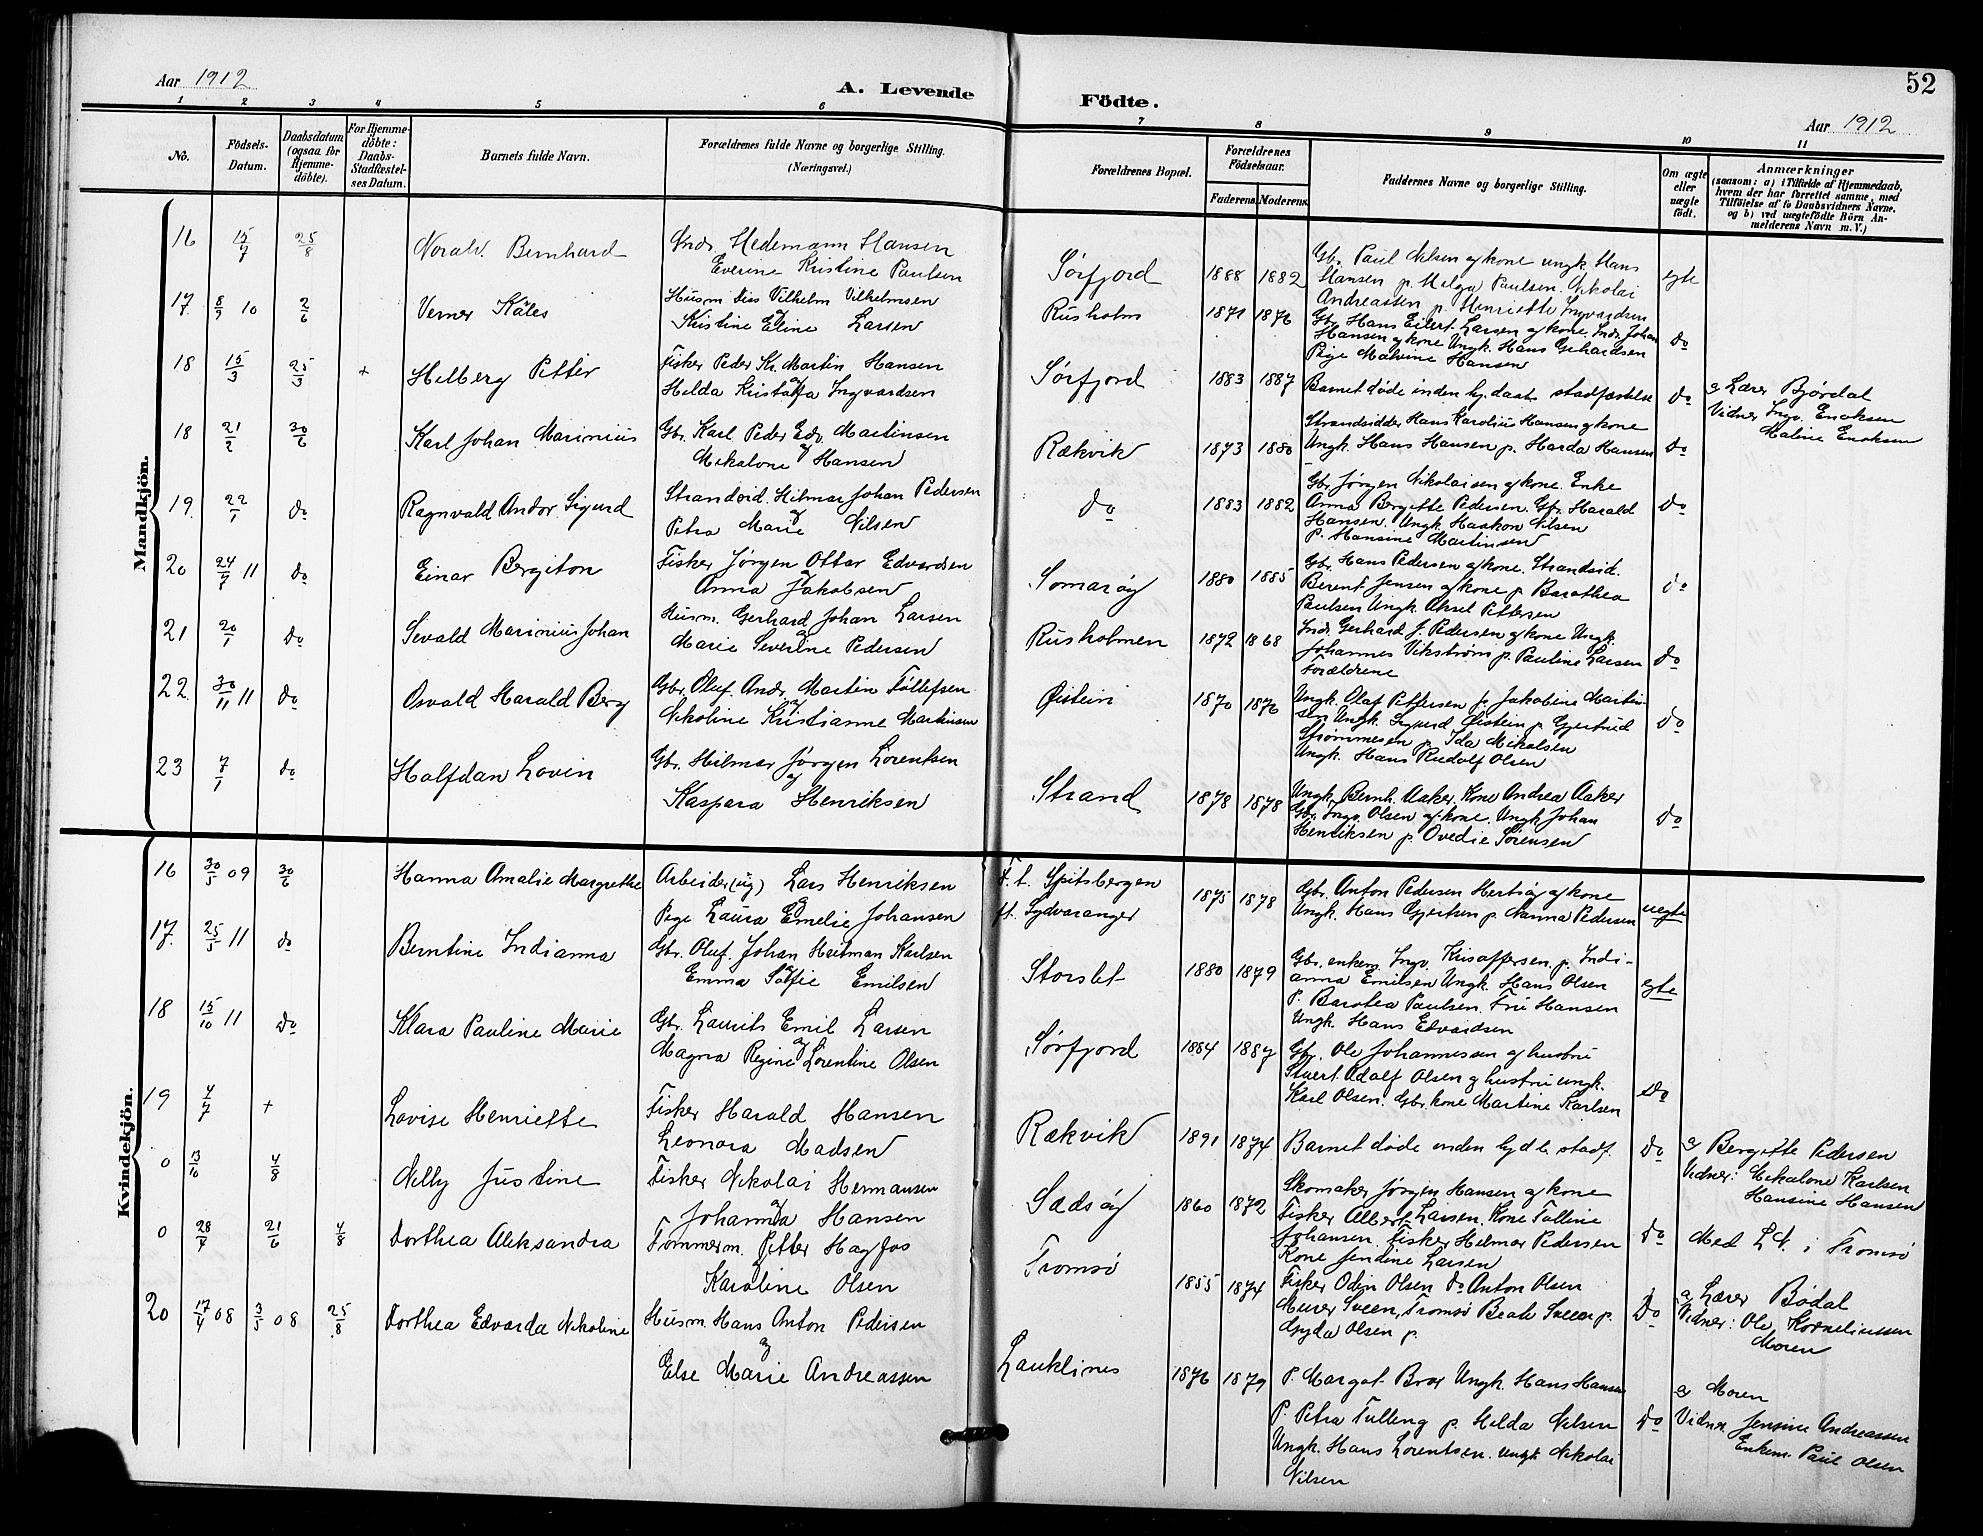 Aar 1912
A. Levende
Födte.
52
Aar 1912
1 2 3 4 5 6 7 8 9 10 11
No.
Födsels-Datum.
Daabsdatum (ogsaa for Hjemmedöbte).
For Hjemmedöbte: Daabs-Stadfæstelses Datum.
Barnets fulde Navn.
Forældrenes fulde Navne og borgerlige Stilling. (Næringsvei.)
Forældrenes Bopæl.
Forældrenes Födselsaar.
Faderens. Moderens.
Faddernes Navne og borgerlige Stilling.
Om ægte eller uægte födt.
Anmærkninger
(saasom: a) i Tilfælde af Hjemmedaab, hvem der har forrettet samme, med Tilföielse af to Daabsvidners Navne, og b) ved uægtefödte Börn Anmelderens Navn m. V.)
Mandkjön.
16 15/7 25/8 Norald Bernhard
Indr. Hedemann Hansen
Everine Kristine Paulsen
Sørfjord 1888 1882
Gbr. Paul Nilsen og kone ungk. Hans
Hansen p. Helga Paulsen. Nikolai
Andreassen p. Henriette Ingvardsen
egte
17. 8/9 10 2/6 Verner Käles
Husm. Vilhelm Vilhelmsen
Kristine Eline Larsen
Rusholm 1871 1876
Gbr. Hans Eilert Larsen og kone. Indr. Johan
Hansen og kone Ungk. Hans Gerhardsen
Pige Malvine Hansen
do
18 15/3 25/3 + Helberg Petter
Fisker Peder Kr. Martin Hansen
og
Hilda Ingvardsen
Sørfjord 1883 1887
Barnet døde inden hj. daabs stadfæstelse
do
a Lærer Bjørdal
Vidner Ingv. Enoksen
Maline Enoksen
18 21/2 30/6 Karl Johan Marinius
Gbr. Karl Peder Edv. Martinsen
og
Mekalone Hansen
Rækvik 1873 1880
Strandsidder Hans Karolius Hansen og kone
Ungk. Hans Hansen p. Harda Hansen
do
19. 22/1 do Ragnvald Andor Sigurd
Strandsid. Hilmar Johan Pedersen
og
Petra Marie Nilsen
do 1883 1882
Gbr. Jørgen Nikolaisen og kone. Enke
Anna Bergitte Pedersen. Gbr. Harald
Hansen. Ungk. Haakon Nilsen
P. Hansine Martinsen
do
20 24/9 11 do Einar Bergiton
Fisker Jørgen Ottar Edvardsen
og
Anna Jakobsen
Somarøy 1880 1885
Gbr. Hans Pedersen og kone. Strandsid.
Berent Jensen og kone p. Barothea
Paulsen Ungk. Aksel Pettersen
do
21 20/1 do Sevald Marinius Johan
Husm. Gerhard Johan Larsen
og
Marie Severine Pedersen
Rusholmen 1872 1868
Indr. Gerhard J. Pedersen og kone Ungk.
Johannes Vikstrøm p. Pauline Larsen
Forældrene
do
22. 30/11 11 do Osvald Harald Berg
Gbr. Oluf Andr. Martin Tollefsen
og
Nikoline Kristianne Martinsen
Øistein 1870 1876
Ungk. Olaf Pettersen p. Jakobine Martin-
sen Ungk. Sigurd Øistein p. Gjertrud
Strømmesen p. Ida Mikalsen
Ungk. Hans Rudolf Olsen
do
23 7/1 do Halfdan Lovin
Gbr. Hilmar Jørgen Lorentsen
og
Kaspara Henriksen
Strand 1878 1878
Ungk. Bernh. Aaker. Kone Andrea Aaker
Gbr. Ingv. Olsen og kone. Ungk. Johan
Henriksen p. Ovedie Sørensen
do
Kvindekjön.
16 30/5 09 30/6 Hanna Amalie Margrethe
Arbeider (ug) Lars Henriksen
og
Pige Laura Emelie Johansen
F. t. Spitsbergen
ft. Sydvaranger
1875 1878
Gbr. Anton Pedersen Hertsøy og kone
Ungk. Hans Gjertsen p. Nanna Pedersen
uegte
17. 25/5 11 do Berntine Indianna
Gbr. Oluf Johan Hartman Karlsen
og
Emma Sofie Emilsen
Storslet 1880 1879
Gbr. enkem. Ingv. Kristoffersen. p. Indi-
anna Emilsen Ungk. Hans Olsen
P. Barotea Paulsen. Fru Hansen
Ungk. Hans Edvardsen
egte
18 15/10 11 do Klara Pauline Marie
Gbr. Laurits Emil Larsen
og
Magna Regine Lorentine Olsen
Sørfjord 1884 1887
Gbr. Ole Johannessen og hustru
Stuert Adolf Olsen og hustru ungk.
Karl Olsen. Gbr. kone Martine Karlsen
do
19 4/7 + Lovise Henriette
Fisker Harald Hansen
Leonora Madsen
Rækvik 1891 1874
Barnet døde inden hj.d. stadf.
do
a Bergitte Pedersen
Vidner: Mekalone Karlsen
Hansine Hansen
0 13/10 4/8 Nelly Justine
Fisker Nikolai Hermansen
og
Johanna Hansen
Sædsøy 1860 1872
Skomaker Jørgen Hansen og kone
Fisker Albert Larsen. Kone Talline
Johansen. Fisker Hilmar Pedersen
Kone Jendine Larsen
do
Med i Tromsø
0 28/4 21/6 4/8 Dorthea Aleksandra
Tømmerm. Petter Hagfos
og
Karoline Olsen
Tromsø 1855 1874
Fisker Odin Olsen do Anton Olsen
Murer Sveen, Tromsø Beate Sveen p.
Gyda Olsen p.
do
a Lærer Bødal
Vidner: Ole Korneliussen
Moren
20 17/4 08 3/5 08 25/8 Dorthea Edvarda Nikoline
Husm. Hans Anton Pedersen
og
Else Marie Andreassen
Lauklines 1876 1879
P. Margot Brox Ungk. Hans Hansen
P. Petra Tulling p. Hilda Nilsen
Ungk. Hans Lorentsen. ungk Nikolai
Nilsen
do
a Moren
Vidner Jensine Andreassen
Enkem. Paul Olsen